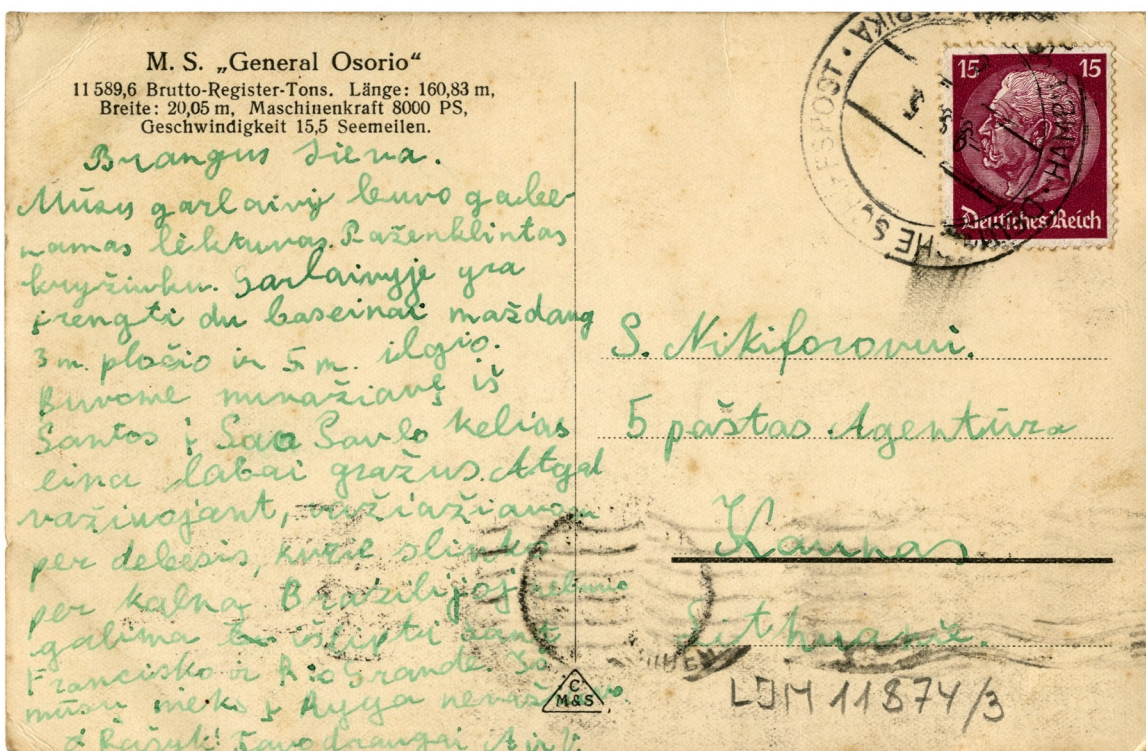 M. S. „General Osorio“
11 589,6 Brutto-Register-Tons. Länge: 160,83 m,
Breite: 20,05 m, Maschinenkraft 8000 PS,
Geschwindigkeit 15,5 Seemeilen.
Brangus Siera.
Mūsų garlaivį buvo gabe
namas lėktuvas. Paženklintas
kryžiuku. Garlaivyje yra
įrengti du baseinai maždaug
3 m. pločio ir 5 m. ilgio.
Buvome nuvažiavę iš
Santos į Sao Paulo kelias
eina labai gražus. Atgal
važiuojant,
per debesis, kurie slinko
per kalną. Brazilijoj
galima išlipti
Francisko ir Rio Grande. Iš
mūsų nieks į
Rašyk! Tavo draugai A ir V.
15 15
Deutsches Reich
S. Nikiforovui.
5 paštas Agentūra
Kaunas
Lithuanie.
C
M&S
LJM 11874/3